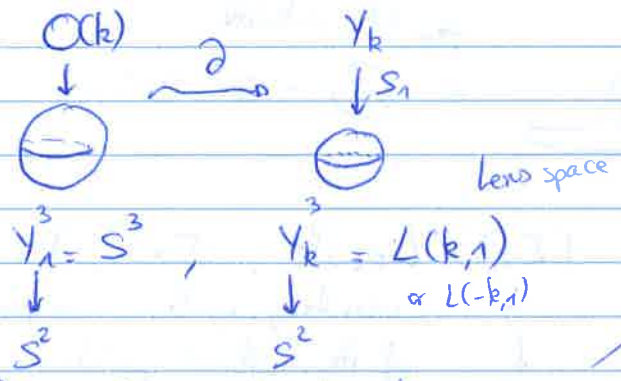 O(k) ∂ Y_k
↓ ⟶ ↓ S_1
Lens space
Y_1^3 = S^3 , Y_k^3 = L(k,1)
↓ ↓ or L(-k,1)
S^2 S^2